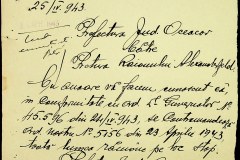 25/IV.943.
Prefectura Jud. Ocacov
Către
Pretura Raionului Alexandrfeld.
Cu onoare vă facem cunoscut că
în conformitate cu ord. D. Guvernator No.
45.596 din 24/IV.943, se contramandează
ord. nostru No. 5756 din 23 Aprilie 1943
rămâne pe loc